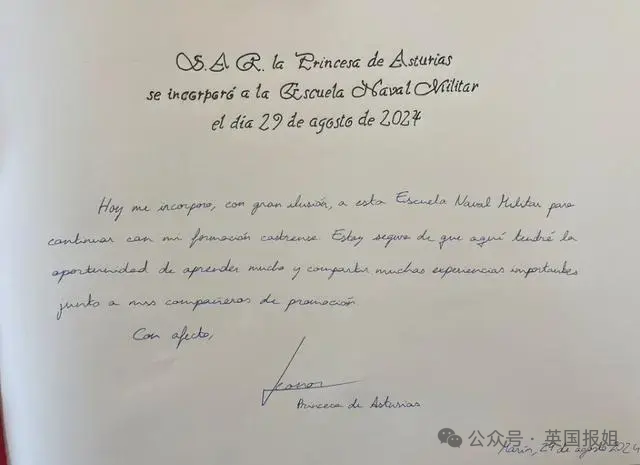 S. A. R. la Princesa de Asturias
se incorporó a la Escuela Naval Militar
el día 29 de agosto de 2024
Hoy me incorporo, con gran ilusión, a esta Escuela Naval Militar para
continuar con mi formación castrense. Estoy segura de que aquí tendré la
oportunidad de aprender mucho y compartir muchas experiencias importantes
junto a mis compañeros de promoción.
Con afecto,
Leonor
Princesa de Asturias
Marín, 29 de agosto 2024
公众号 · 英国报姐